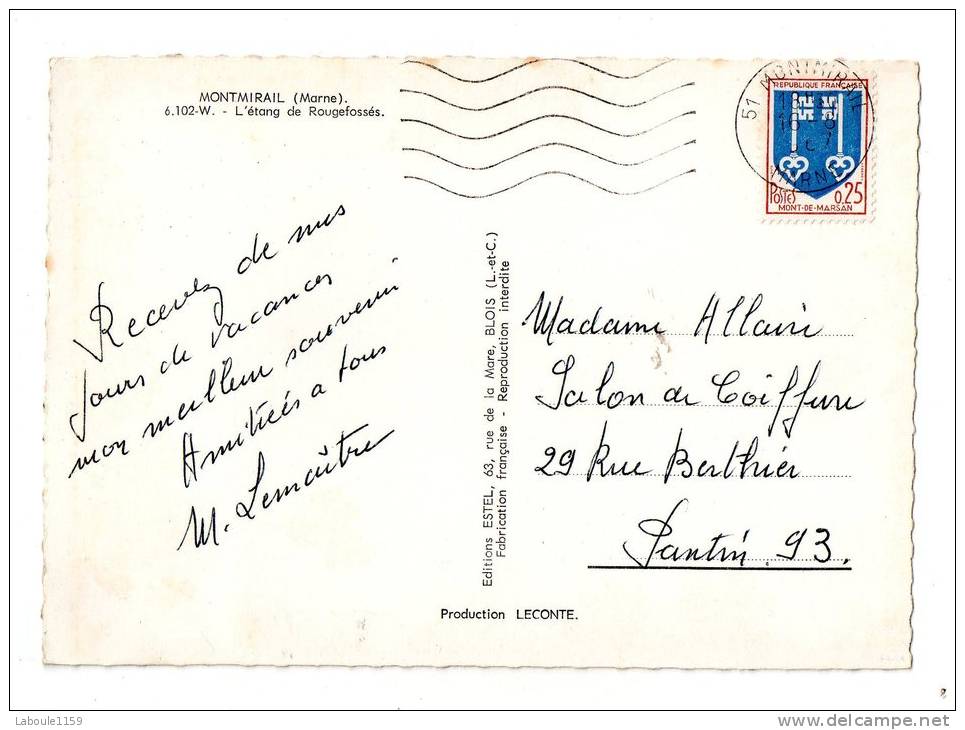 MONTMIRAIL (Marne).
6.102-W. - L'étang de Rougefossés.
51 MONTMIRAIL
MARNE
REPUBLIQUE FRANÇAISE
POSTES 0.25
MONT-DE-MARSAN
Recevez de mes
jours de vacances
mon meilleur souvenir
Amitiées a tous
M. Lemaître
Editions ESTEL, 63, rue de la Mare, BLOIS (L.-et-C.)
Fabrication française - Reproduction interdite
Madame Allaire
Salon de Coiffure
29 Rue Berthier
Pantin. 93.
Production LECONTE.
Laboule1159
www.delcampe.net